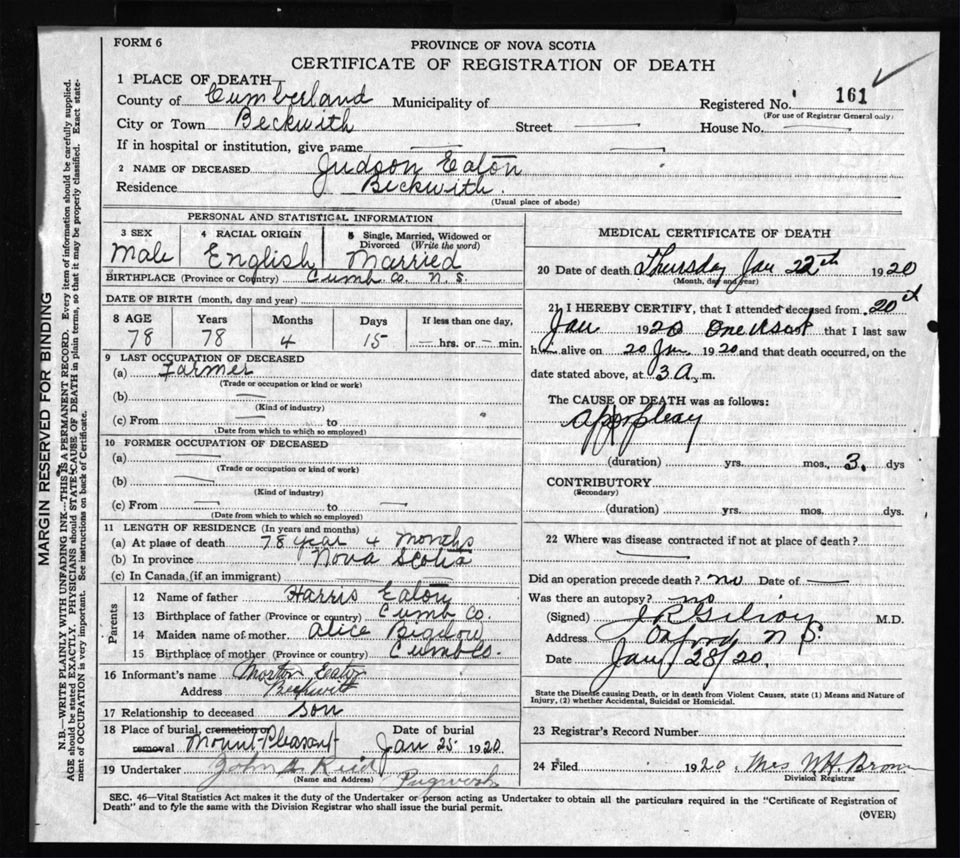 FORM 6
PROVINCE OF NOVA SCOTIA
CERTIFICATE OF REGISTRATION OF DEATH
1 PLACE OF DEATH
County of Cumberland Municipality of Registered No. 161
(For use of Registrar General only)
City or Town Beckwith Street House No.
If in hospital or institution, give name
2 NAME OF DECEASED Judson Eaton
Residence Beckwith.
(Usual place of abode)
PERSONAL AND STATISTICAL INFORMATION
3 SEX 4 RACIAL ORIGIN 5 Single, Married, Widowed or Divorced (Write the word)
Male English Married
BIRTHPLACE (Province or Country) Cumb. Co. N. S.
DATE OF BIRTH (month, day and year)
8 AGE Years Months Days If less than one day,
78 78 4 15 — hrs. or — min.
9 LAST OCCUPATION OF DECEASED
(a) Farmer
(Trade or occupation or kind or work)
(b)
(Kind of industry)
(c) From to
(Date from which to which so employed)
10 FORMER OCCUPATION OF DECEASED
(a)
(Trade or occupation or kind of work)
(b)
(Kind of industry)
(c) From to
(Date from which to which so employed)
11 LENGTH OF RESIDENCE (In years and months)
(a) At place of death 78 year 4 months
(b) In province Nova Scotia
(c) In Canada (if an immigrant)
Parents
12 Name of father Harris Eaton
13 Birthplace of father (Province or country) Cumb Co.
14 Maiden name of mother Alice Bigelow
15 Birthplace of mother (Province or country) Cumb Co.
16 Informant's name Eaton
Address Beckwith
17 Relationship to deceased son
18 Place of burial, cremation or removal Mount Pleasant
Date of burial Jan 25 1920
19 Undertaker John Reid Pugwash
(Name and Address)
MEDICAL CERTIFICATE OF DEATH
20 Date of death Thursday Jan 22th 1920
(Month, day and year)
21 I HEREBY CERTIFY, that I attended deceased from 20th
Jan 1920 that I last saw
h alive on 20 Jan 1920 and that death occurred, on the
date stated above, at 3 A. m.
The CAUSE OF DEATH was as follows:
(duration) yrs. mos. 3 dys
CONTRIBUTORY
(Secondary)
(duration) yrs. mos. dys.
22 Where was disease contracted if not at place of death?
Did an operation precede death? no Date of
Was there an autopsy? no
(Signed) M.D.
Address Oxford N S.
Date Jan 28/20.
State the Disease causing Death, or in death from Violent Causes, state (1) Means and Nature of
Injury, (2) whether Accidental, Suicidal or Homicidal.
23 Registrar's Record Number
24 Filed 1920 Mrs W. H. Brown
Division Registrar
SEC. 46—Vital Statistics Act makes it the duty of the Undertaker or person acting as Undertaker to obtain all the particulars required in the "Certificate of Registration of
Death" and to file the same with the Division Registrar who shall issue the burial permit.
(OVER)
MARGIN RESERVED FOR BINDING
N.B.—WRITE PLAINLY WITH UNFADING INK—THIS IS A PERMANENT RECORD. Every item of information should be carefully supplied.
AGE should be stated EXACTLY. PHYSICIANS should STATE CAUSE OF DEATH in plain terms, so that it may be properly classified. Exact state-
ment of OCCUPATION is very important. See instructions on back of Certificate.